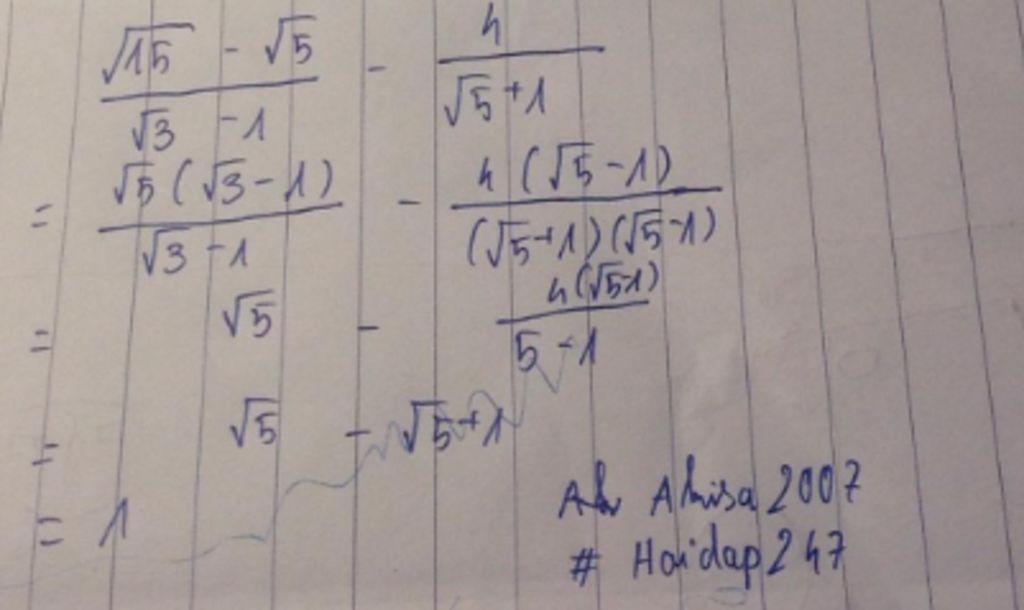 (√15 - √5)/(√3 - 1) - 4/(√5 + 1)
= √5(√3 - 1)/(√3 - 1) - 4(√5 - 1)/((√5 + 1)(√5 - 1))
= √5 - 4(√5-1)/(5 - 1)
= √5 - √5 + 1
= 1
2007
# Hoidap247